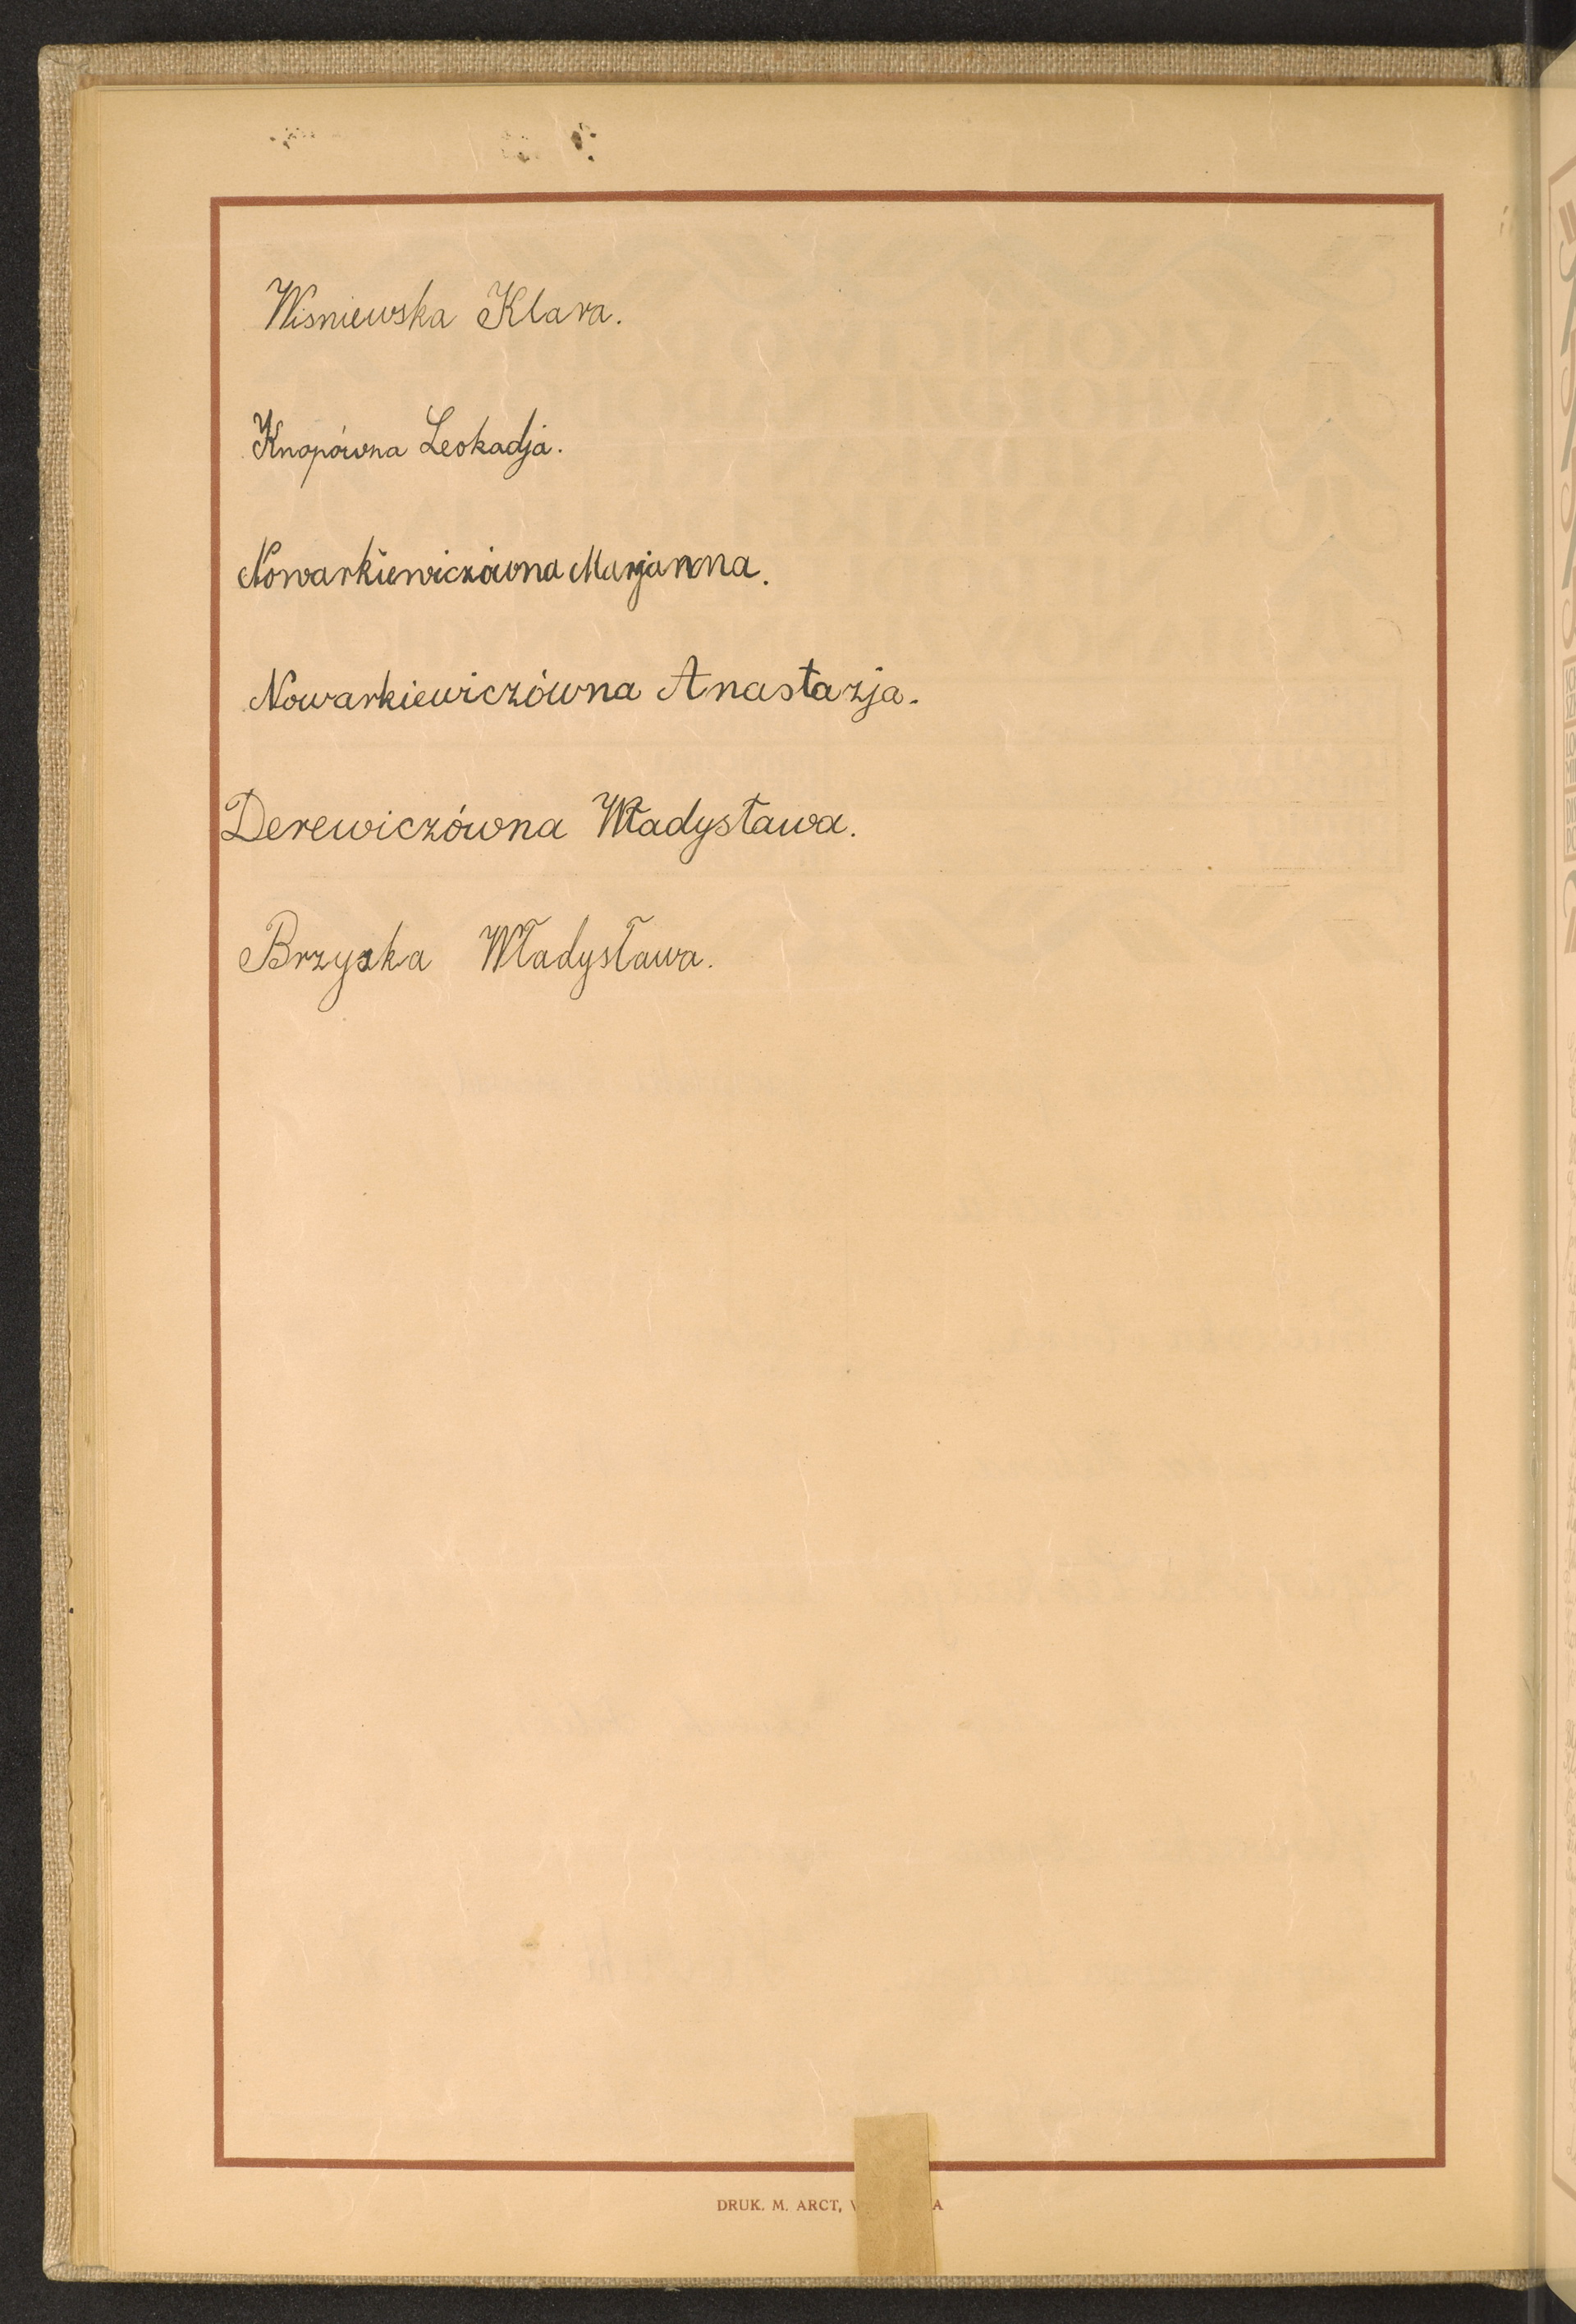 Wisniewska Klara.
Knopówna Leokadja.
Nowarkiewiczówna Marjanna.
Nowarkiewiczówna Anastazja.
Derewiczówna Władysława.
Brzyska Władysława.
DRUK. M. ARCT,